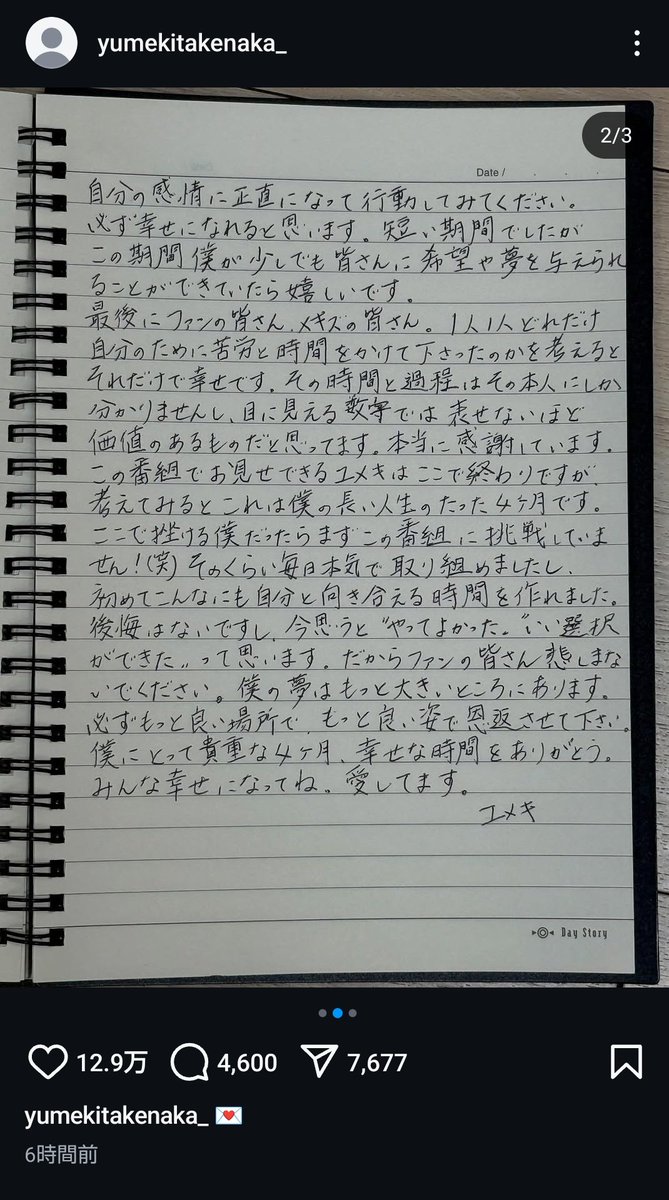 yumekitakenaka_
2/3
Date /
自分の感情に正直になって行動してみてください。
必ず幸せになれると思います。短い期間でしたが
この期間僕が少しでも皆さんに希望や夢を与えられ
ることができていたら嬉しいです。
最後にファンの皆さん、メキズの皆さん。1人1人どれだけ
自分のために苦労と時間をかけて下さったのかを考えると
それだけで幸せです。その時間と過程はその本人にしか
分かりませんし、目に見える数字では表せないほど
価値のあるものだと思ってます。本当に感謝しています。
この番組でお見せできるユメキはここで終わりですが、
考えてみるとこれは僕の長い人生のたった4ヶ月です。
ここで挫ける僕だったらまずこの番組に挑戦していま
せん!(笑)そのくらい毎日本気で取り組めましたし、
初めてこんなにも自分と向き合える時間を作れました。
後悔はないですし、今思うと"やってよかった" "いい選択
ができた"って思います。だからファンの皆さん悲しまな
いでください。僕の夢はもっと大きいところにあります。
必ずもっと良い場所で、もっと良い姿で恩返させて下さい。
僕にとって貴重な4ヶ月、幸せな時間をありがとう。
みんな幸せになってね。愛してます。
ユメキ
Day Story
12.9万 4,600 7,677
yumekitakenaka_ 💌
6時間前